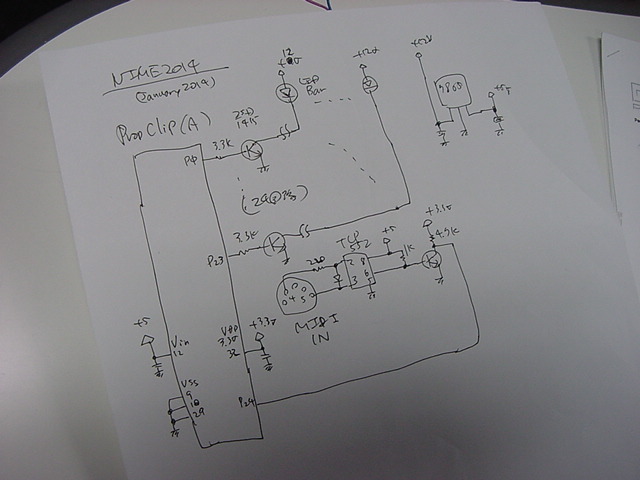 NIME2014
(January 2014)
PropClip(A)
12
+12V
LED
Bar
+12V
+12V
+5V
2SD
1415
3.3K
P0
3.3K
P23
TLP
552
+5
+3.3V
4.7K
1K
220
2
8
6
3
5
4
5
MIDI
IN
+5
Vin
12
VDD
3.3V
32
+3.3V
Vss
9
10
29
P24